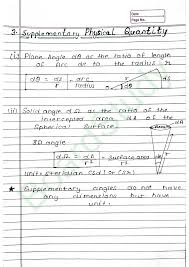 Date
Page No.
3. Supplementary Physical Quantity
(i) Plane angle dθ as the ratio of length
of arc ds to the radius r
dθ = ds/r = arc/radius
(ii) Solid angle dΩ as the ratio of the
intercepted area dA of the
Spherical Surface
3D angle
dΩ = dA/r² = Surface area/r²
Unit: steridian (sd) or (sr)
★ Supplementary angles are not have
any dimensions but have
unit.